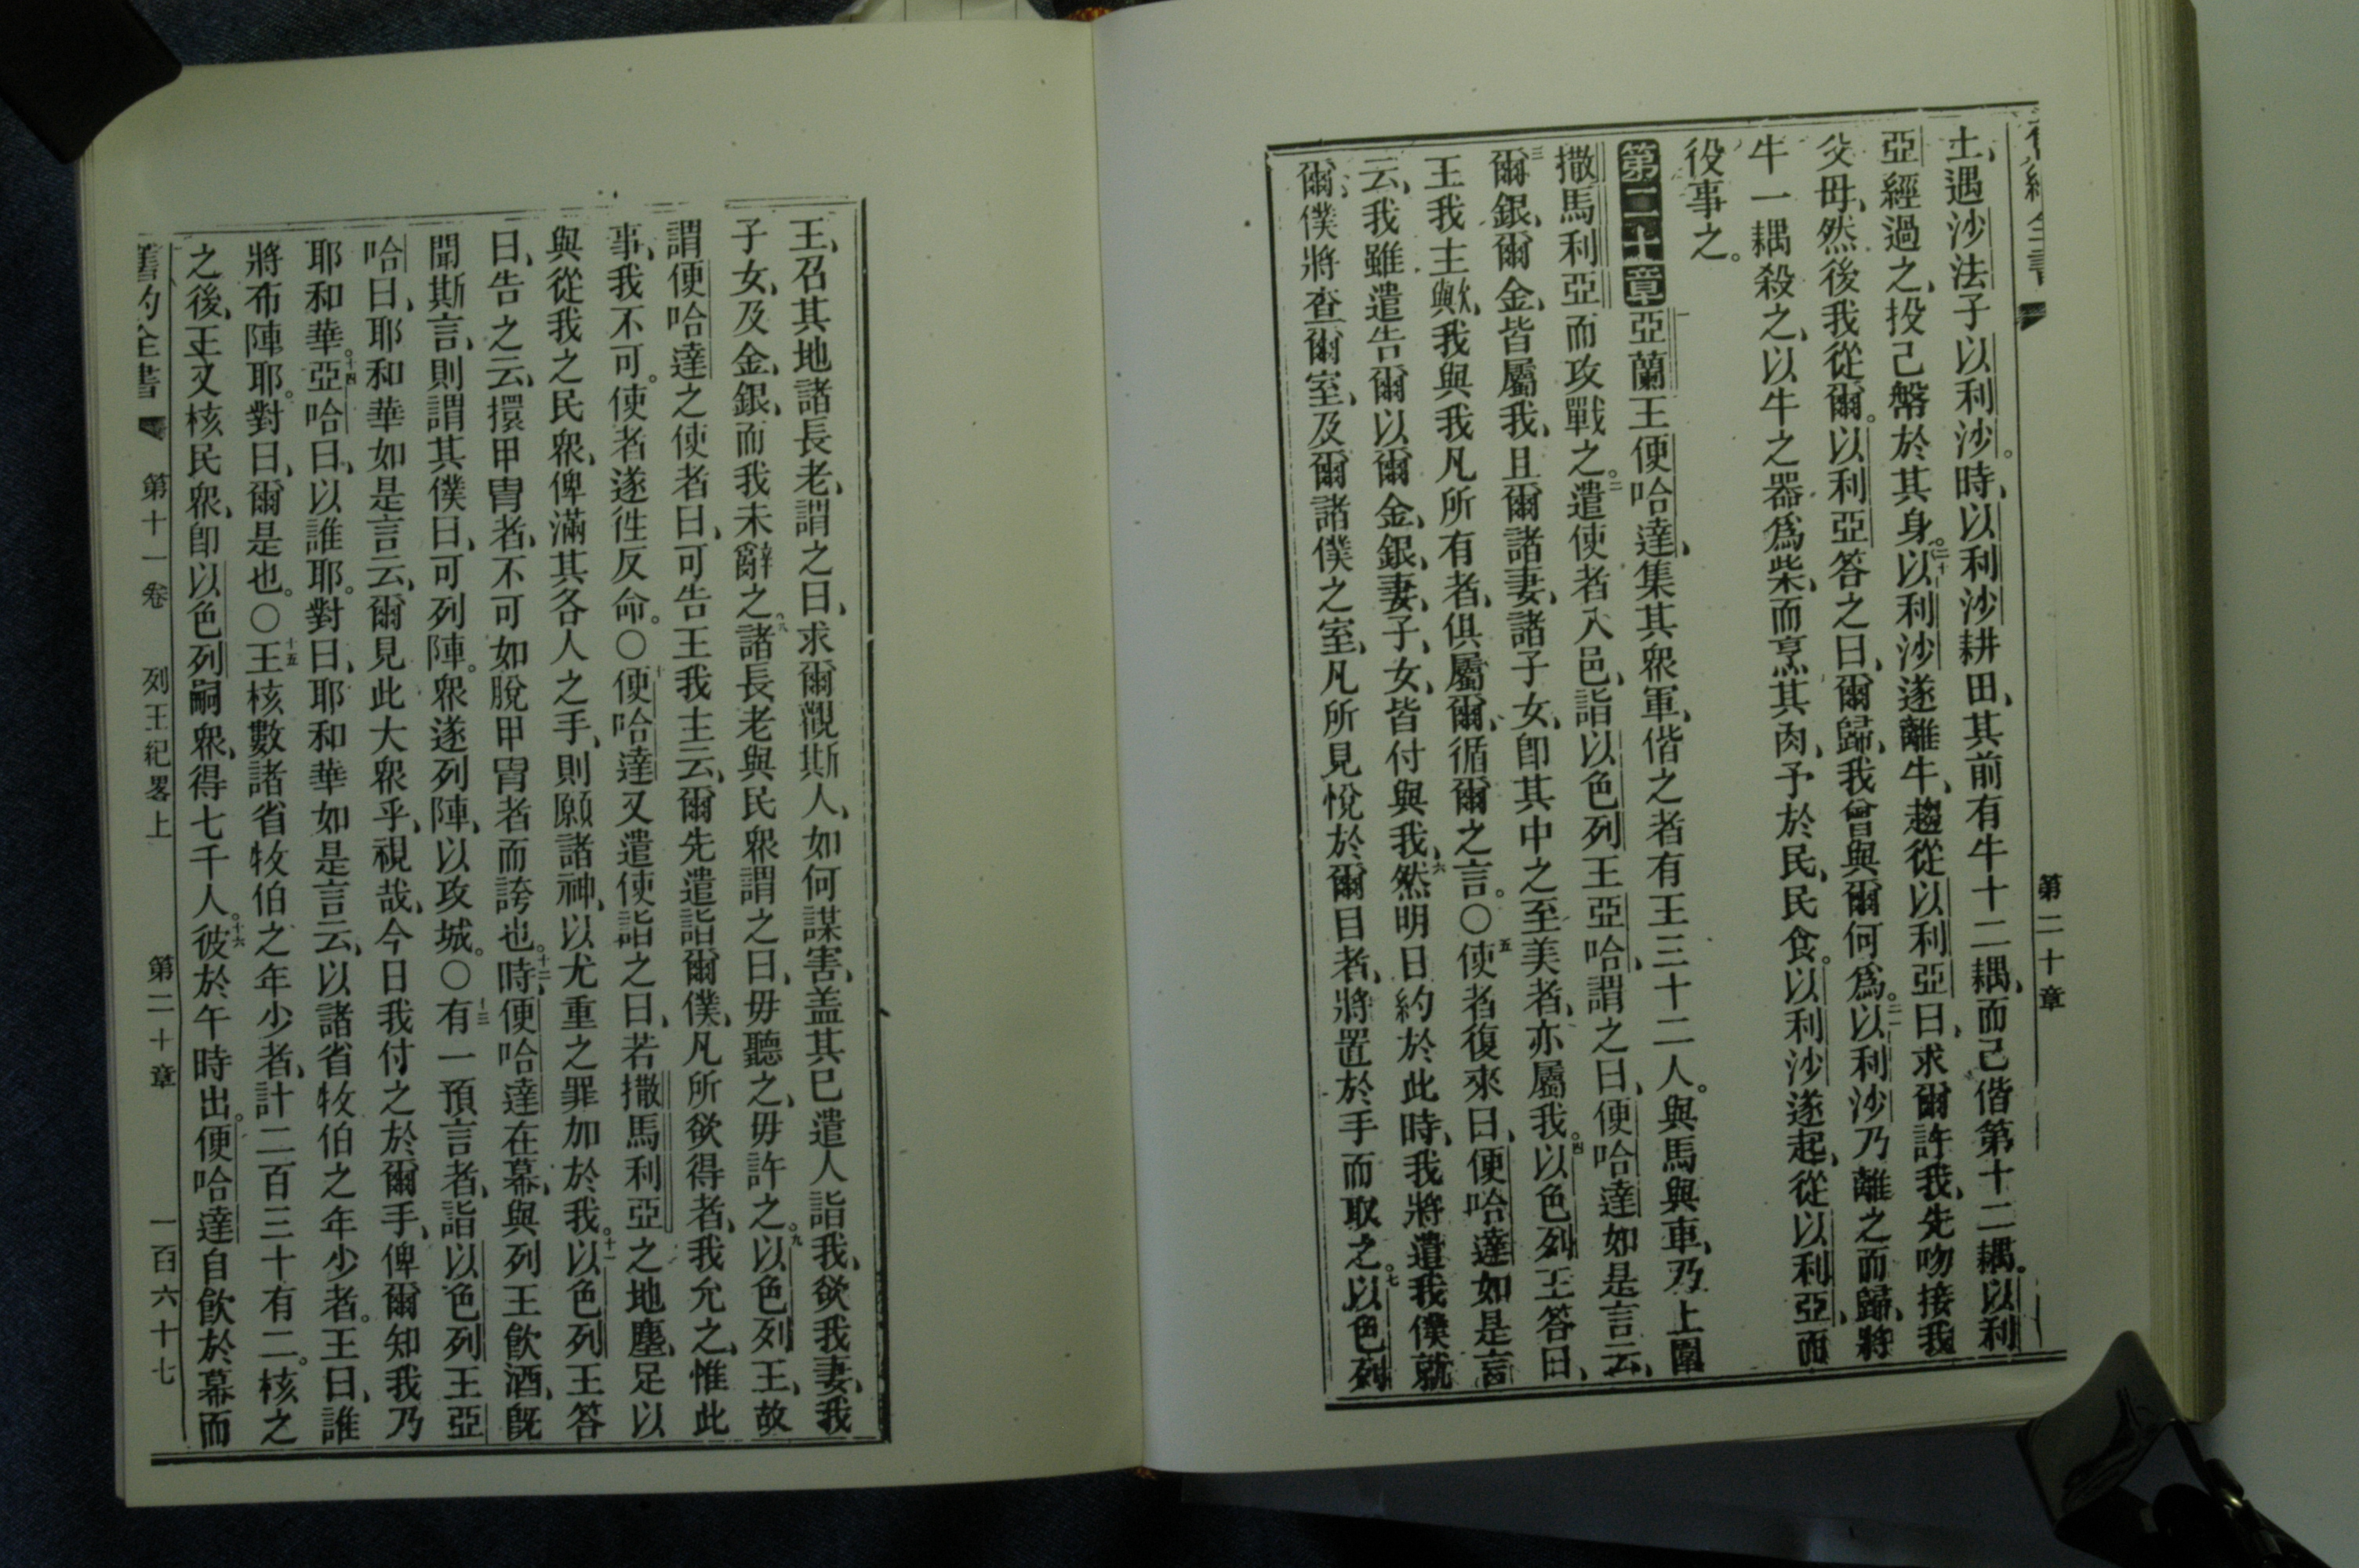 第二十章
土、遇沙法子以利沙。時、以利沙耕田、其前有牛十二耦、而己偕第十二耦。以利
亞經過之、投己槃於其身。二十以利沙遂離牛、趨從以利亞曰、求爾許我、先吻接我
父母、然後我從爾。以利亞答之曰、爾歸、我曾與爾何爲。二一以利沙乃離之而歸、將
牛一耦殺之、以牛之器爲柴、而烹其肉、予於民、民食。以利沙遂起、從以利亞、而
役事之。
第二十章一亞蘭王便哈達、集其衆軍、偕之者有王三十二人。與馬與車、乃上圍
撒馬利亞而攻戰之。二遣使者入邑、詣以色列王亞哈、謂之曰、便哈達如是言云、
三爾銀、爾金、皆屬我、且爾諸妻、諸子女、卽其中之至美者、亦屬我。四以色列王答曰、
王我主歟、我與我凡所有者、俱屬爾、循爾之言。〇五使者復來曰、便哈達如是言
云、我雖遣告爾以爾金、銀、妻、子、女、皆付與我、六然明日約於此時、我將遣我僕就
爾、僕將查爾室、及爾諸僕之室、凡所見悅於爾目者、將置於手而取之。七以色列
王、召其地諸長老、謂之曰、求爾觀斯人、如何謀害、盖其已遣人詣我、欲我妻、我
子女、及金、銀、而我未辭之。八諸長老與民衆謂之曰、毋聽之、毋許之。九以色列王、故
謂便哈達之使者曰、可告王我主云、爾先遣詣爾僕、凡所欲得者、我允之、惟此
事、我不可。使者遂徃反命。〇十便哈達又遣使詣之曰、若撒馬利亞之地塵、足以
與從我之民衆、俾滿其各人之手、則願諸神、以尤重之罪加於我。十一以色列王答
曰、告之云、擐甲胄者、不可如脫甲胄者而誇也。十二時、便哈達在幕、與列王飮酒、旣
聞斯言、則謂其僕曰、可列陣。衆遂列陣、以攻城。〇十三有一預言者、詣以色列王亞
哈曰、耶和華如是言云、爾見此大衆乎、視哉、今日我付之於爾手、俾爾知我乃
耶和華。十四亞哈曰、以誰耶。對曰、耶和華如是言云、以諸省牧伯之年少者。王曰、誰
將布陣耶。對曰、爾是也。〇十五王核數諸省牧伯之年少者、計二百三十有二。核之
之後、王又核民衆、卽以色列嗣衆、得七千人。十六彼於午時出。便哈達自飮於幕而
舊約全書 第十一卷 列王紀畧上 第二十章 一百六十七